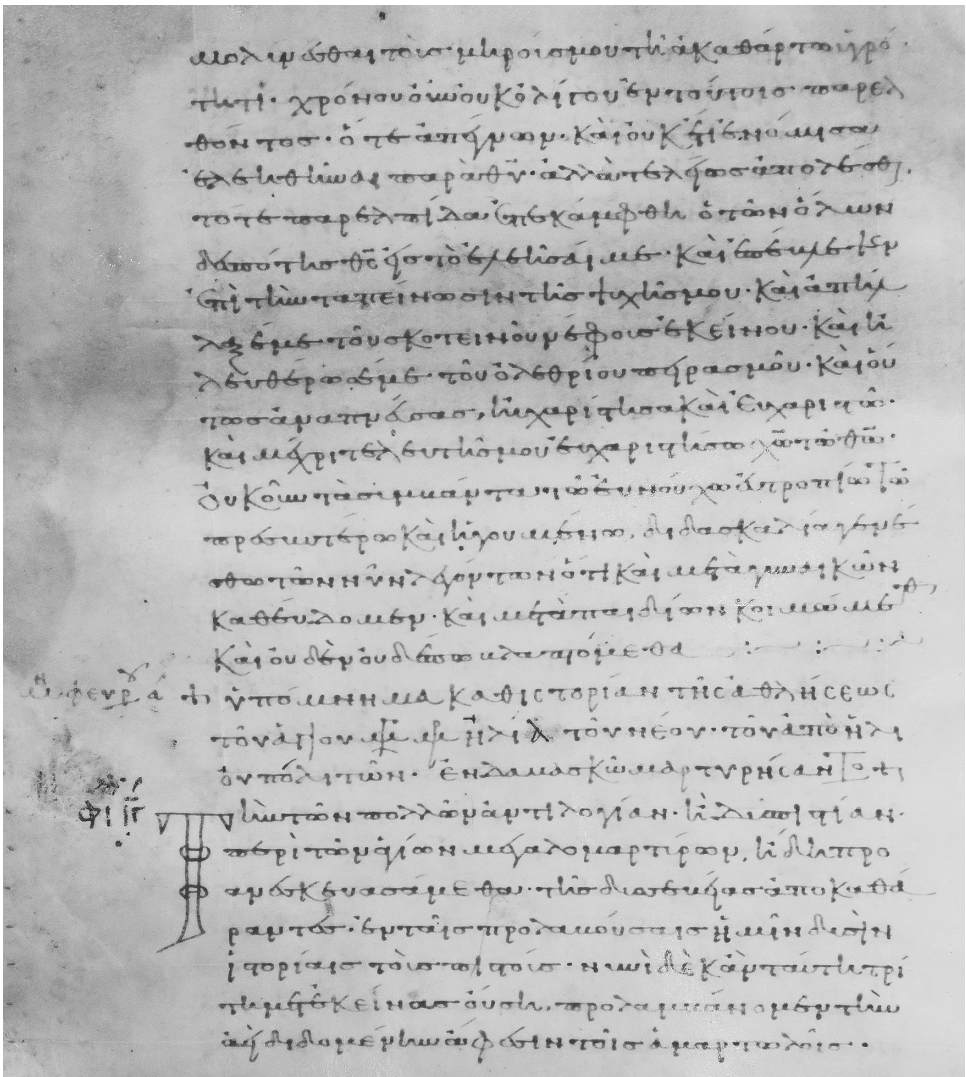 μολυνέσθαι τοὺς μηρούσμου τῆ ἀκαθάρτω ὑγρό
τητι· χρόνου οὖν οὐκ ὀλίγου ἐν τούτοις παρελ
θόντος· ὅτε ἀπέγνων· καὶ οὐκέτι ἐνόμισα
ἐλεηθῆναι παρὰ θῦ· ἀλλὰ τελείως ἀπολέσθαι
τότε παρ ἐλπίδα ἐπεκάμφθη ὁ τῶν ὅλων
δεσπότης θς εἰς τὸ ἐλεῆσαί με· καὶ ἐπέβλεψεν
ἐπὶ τὴν ταπείνωσιν τῆς ψυχῆς μου· καὶ ἀπήλ
λαξέ με τοῦ σκοτεινοῦ νέφους ἐκείνου· καὶ ἠ
λευθέρωσέ με τοῦ ὀλεθρίου πειρασμοῦ· καὶ οὕ
τως ἀναπνεύσας, ηὐχαρίστησα καὶ εὐχαριστῶ·
καὶ μέχρι τελευτῆς μου εὐχαριστήσω χω τῶ θω·
Οὐκοῦν
πρεσβυτέρω καὶ ἡγουμένω, διδασκαλία γενέ
σθω τῶν νῦν λεγόντων ὅτι καὶ μετὰ γυναικῶν
καθεύδομεν· καὶ μετὰ παιδίων κοιμώμεθα
καὶ οὐδὲν οὐδέπω βλαπτόμεθα
φευρ α ὑπόμνημα καθιστορίαν τῆς ἀθλήσεως
τοῦ ἁγίου ἠλία τοῦ νέου· τοῦ ἀπὸ ἡλι
οὐπολιτῶν· ἐν δαμασκῶ μαρτυρήσαντος
Τὴν τῶν πολλῶν ἀντιλογίαν· ἢ δυσπιστίαν·
περὶ τῶν νέων μεγαλομαρτύρων, ἤδη προ
ανεσκευασάμεθα· τῆς διοσημείας ἀποκαθά
ραντες· ἐν ταῖς προλαβούσαις ἡμῖν δυσὶν
ἱστορίαις τοῖς πιστοῖς· νυνὶ δὲ κἂν ταύτη τρί
τη μετ ἐκείνας οὔση, προλαμβάνομεν τὴν
ἀεὶ διδομένην ἄφεσιν τοῖς ἁμαρτωλοῖς·